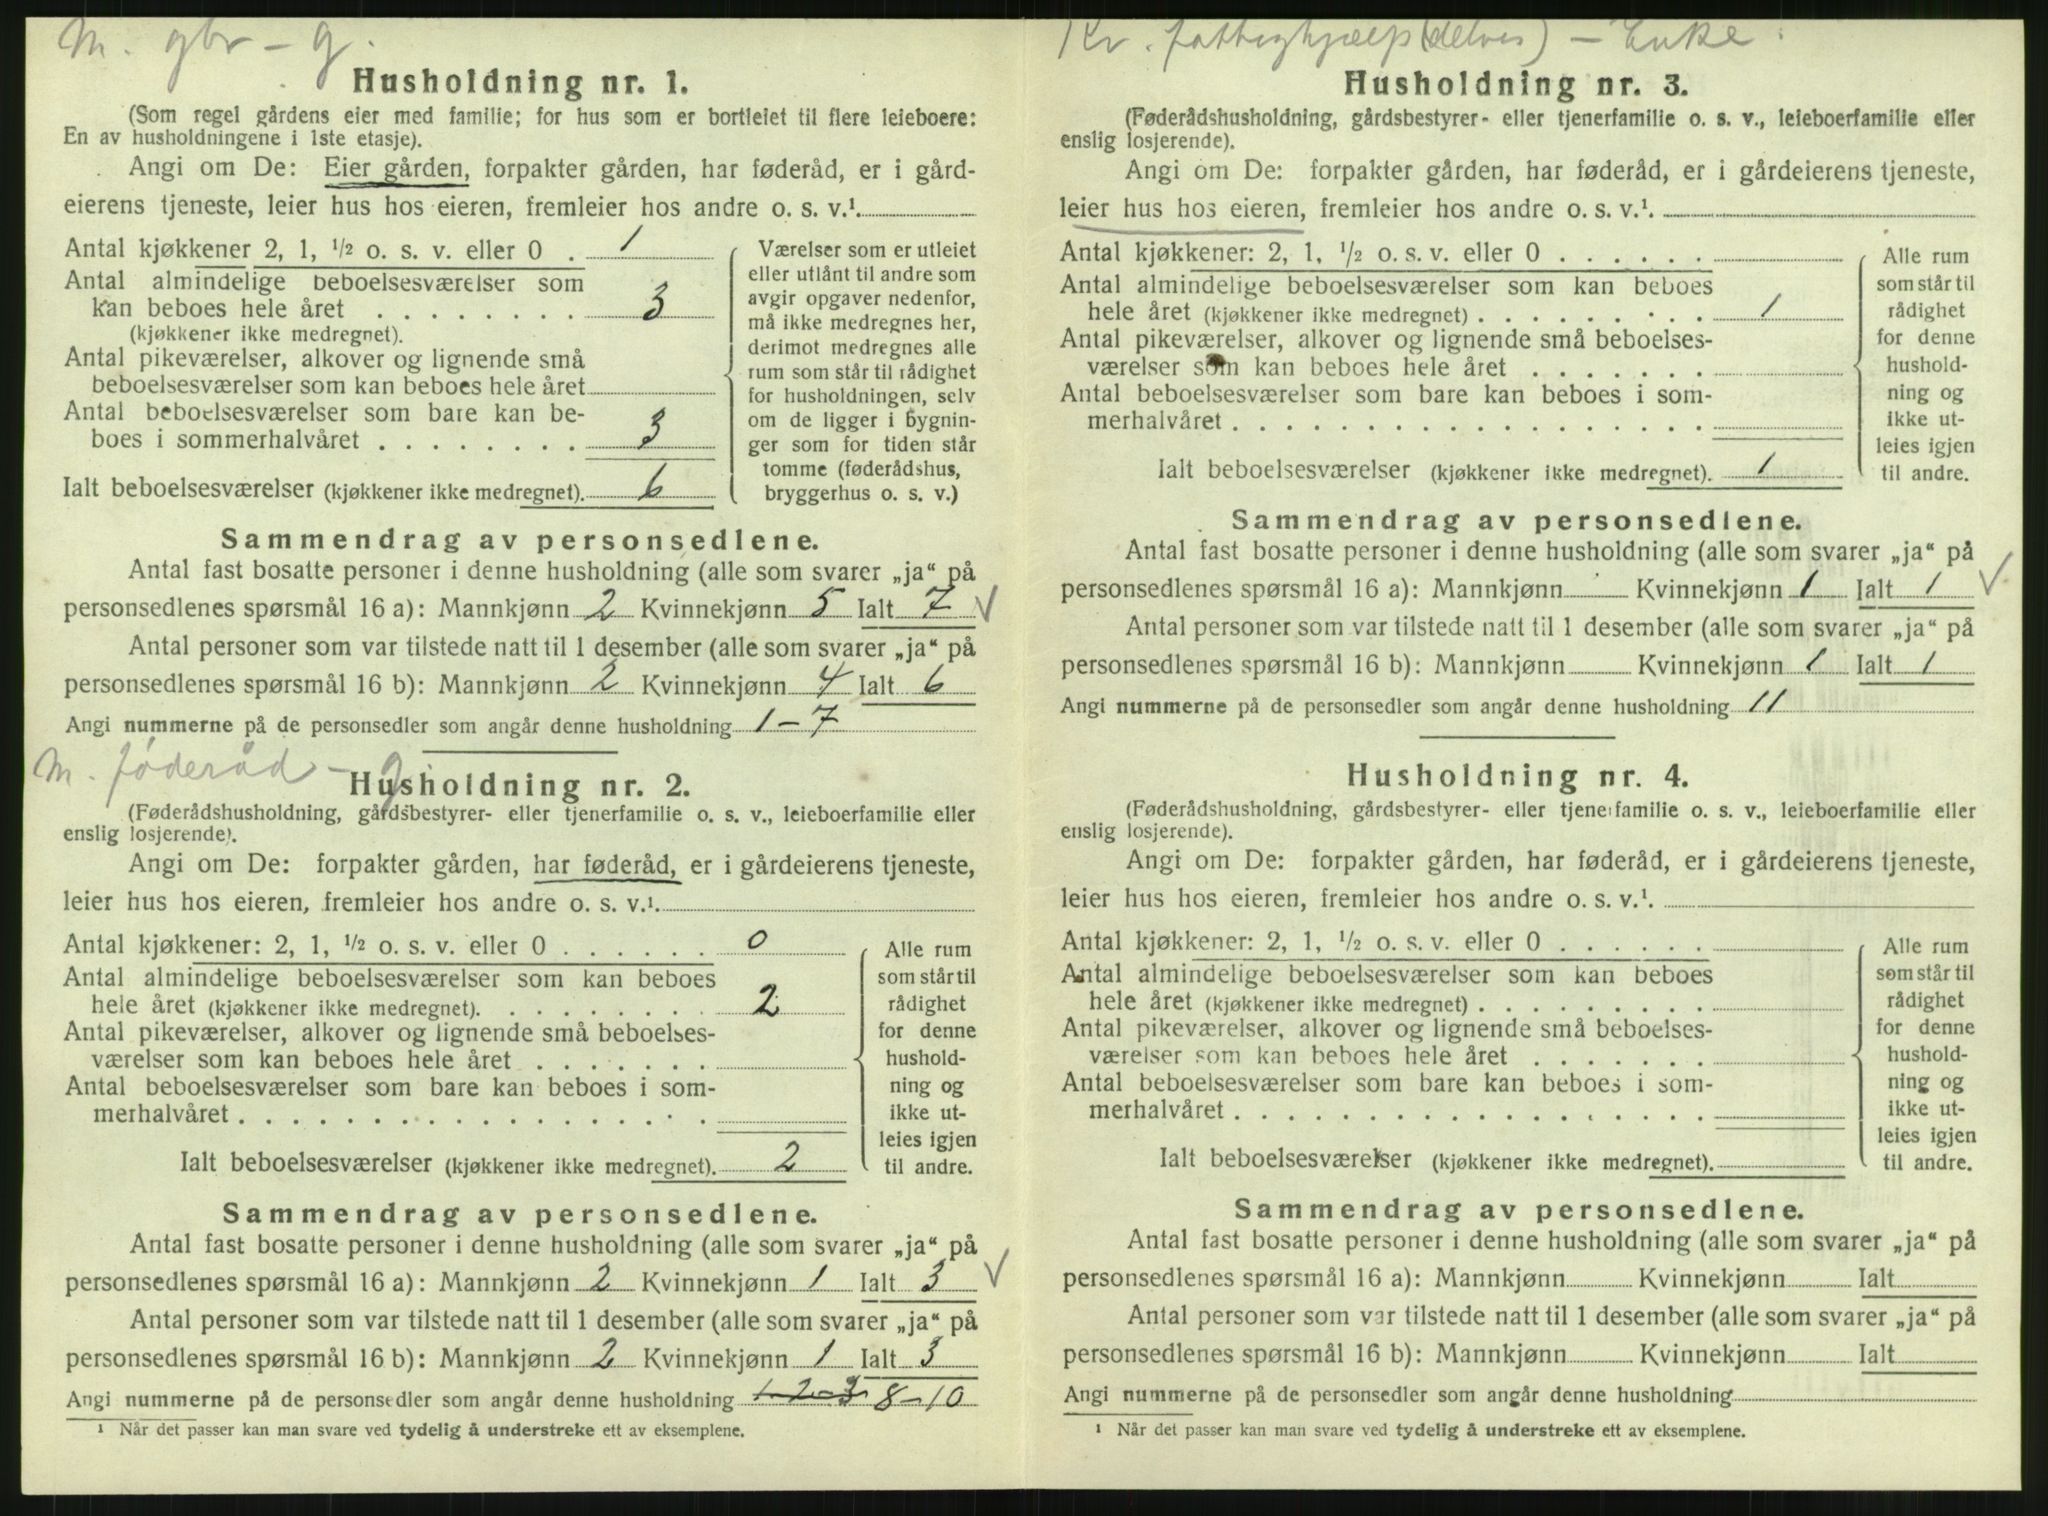 M. gbr – g.
Husholdning nr. 1.
(Som regel gårdens eier med familie; for hus som er bortleiet til flere leieboere:
En av husholdningene i 1ste etasje).
Angi om De: Eier gården, forpakter gården, har føderåd, er i gård-
eierens tjeneste, leier hus hos eieren, fremleier hos andre o. s. v.¹
Antal kjøkkener 2, 1, ½ o. s. v. eller 0 . 1
Antal almindelige beboelsesværelser som
kan beboes hele året . . . . . . . . 3
(kjøkkener ikke medregnet).
Antal pikeværelser, alkover og lignende små
beboelsesværelser som kan beboes hele året
Antal beboelsesværelser som bare kan be-
boes i sommerhalvåret . . . . . . . . 3
Ialt beboelsesværelser (kjøkkener ikke medregnet). 6
Værelser som er utleiet
eller utlånt til andre som
avgir opgaver nedenfor,
må ikke medregnes her,
derimot medregnes alle
rum som står til rådighet
for husholdningen, selv
om de ligger i bygnin-
ger som for tiden står
tomme (føderådshus,
bryggerhus o. s. v.)
Sammendrag av personsedlene.
Antal fast bosatte personer i denne husholdning (alle som svarer „ja“ på
personsedlenes spørsmål 16 a): Mannkjønn 2 Kvinnekjønn 5 Ialt 7 ✓
Antal personer som var tilstede natt til 1 desember (alle som svarer „ja“ på
personsedlenes spørsmål 16 b): Mannkjønn 2 Kvinnekjønn 4 Ialt 6
Angi nummerne på de personsedler som angår denne husholdning 1 – 7
M. føderåd – g.
Husholdning nr. 2.
(Føderådshusholdning, gårdsbestyrer- eller tjenerfamilie o. s. v., leieboerfamilie eller
enslig losjerende).
Angi om De: forpakter gården, har føderåd, er i gårdeierens tjeneste,
leier hus hos eieren, fremleier hos andre o. s. v.¹
Antal kjøkkener: 2, 1, ½ o. s. v. eller 0 . . . . . . 0
Antal almindelige beboelsesværelser som kan beboes
hele året (kjøkkener ikke medregnet). . . . . . . . . 2
Antal pikeværelser, alkover og lignende små beboelses-
værelser som kan beboes hele året . . . . . . .
Antal beboelsesværelser som bare kan beboes i som-
merhalvåret . . . . . . . . . . . . . . . . . .
Ialt beboelsesværelser (kjøkkener ikke medregnet). 2
Alle rum
som står til
rådighet
for denne
hushold-
ning og
ikke ut-
leies igjen
til andre.
Sammendrag av personsedlene.
Antal fast bosatte personer i denne husholdning (alle som svarer „ja“ på
personsedlenes spørsmål 16 a): Mannkjønn 2 Kvinnekjønn 1 Ialt 3 ✓
Antal personer som var tilstede natt til 1 desember (alle som svarer „ja“ på
personsedlenes spørsmål 16 b): Mannkjønn 2 Kvinnekjønn 1 Ialt 3
Angi nummerne på de personsedler som angår denne husholdning 1-2-3 8–10
¹ Når det passer kan man svare ved tydelig å understreke ett av eksemplene.
Kv. fattighjælp (delvis) – Enke.
Husholdning nr. 3.
(Føderådshusholdning, gårdsbestyrer- eller tjenerfamilie o. s. v., leieboerfamilie eller
enslig losjerende).
Angi om De: forpakter gården, har føderåd, er i gårdeierens tjeneste,
leier hus hos eieren, fremleier hos andre o. s. v.¹
Antal kjøkkener: 2, 1, ½ o. s. v. eller 0 . . . . . .
Antal almindelige beboelsesværelser som kan beboes
hele året (kjøkkener ikke medregnet) . . . . . . . . . 1
Antal pikeværelser, alkover og lignende små beboelses-
værelser som kan beboes hele året . . . . . . .
Antal beboelsesværelser som bare kan beboes i som-
merhalvåret . . . . . . . . . . . . . . . . . .
Ialt beboelsesværelser (kjøkkener ikke medregnet). 1
Alle rum
som står til
rådighet
for denne
hushold-
ning og
ikke ut-
leies igjen
til andre.
Sammendrag av personsedlene.
Antal fast bosatte personer i denne husholdning (alle som svarer „ja“ på
personsedlenes spørsmål 16 a): Mannkjønn Kvinnekjønn 1 Ialt 1 ✓
Antal personer som var tilstede natt til 1 desember (alle som svarer „ja“ på
personsedlenes spørsmål 16 b): Mannkjønn Kvinnekjønn 1 Ialt 1
Angi nummerne på de personsedler som angår denne husholdning 11
Husholdning nr. 4.
(Føderådshusholdning, gårdsbestyrer- eller tjenerfamilie o. s. v., leieboerfamilie eller
enslig losjerende).
Angi om De: forpakter gården, har føderåd, er i gårdeierens tjeneste,
leier hus hos eieren, fremleier hos andre o. s. v.¹
Antal kjøkkener: 2, 1, ½ o. s. v. eller 0 . . . . . .
Antal almindelige beboelsesværelser som kan beboes
hele året (kjøkkener ikke medregnet) . . . . . . . . .
Antal pikeværelser, alkover og lignende små beboelses-
værelser som kan beboes hele året . . . . . . .
Antal beboelsesværelser som bare kan beboes i som-
merhalvåret . . . . . . . . . . . . . . . . . .
Ialt beboelsesværelser (kjøkkener ikke medregnet).
Alle rum
som står til
rådighet
for denne
hushold-
ning og
ikke ut-
leies igjen
til andre.
Sammendrag av personsedlene.
Antal fast bosatte personer i denne husholdning (alle som svarer „ja“ på
personsedlenes spørsmål 16 a): Mannkjønn Kvinnekjønn Ialt
Antal personer som var tilstede natt til 1 desember (alle som svarer „ja“ på
personsedlenes spørsmål 16 b): Mannkjønn Kvinnekjønn Ialt
Angi nummerne på de personsedler som angår denne husholdning
¹ Når det passer kan man svare ved tydelig å understreke ett av eksemplene.